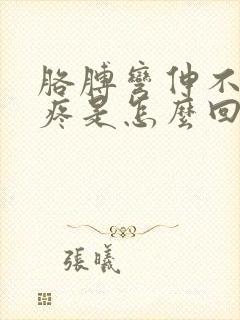 胳膊彎伸不
疼是怎麼回
張曦